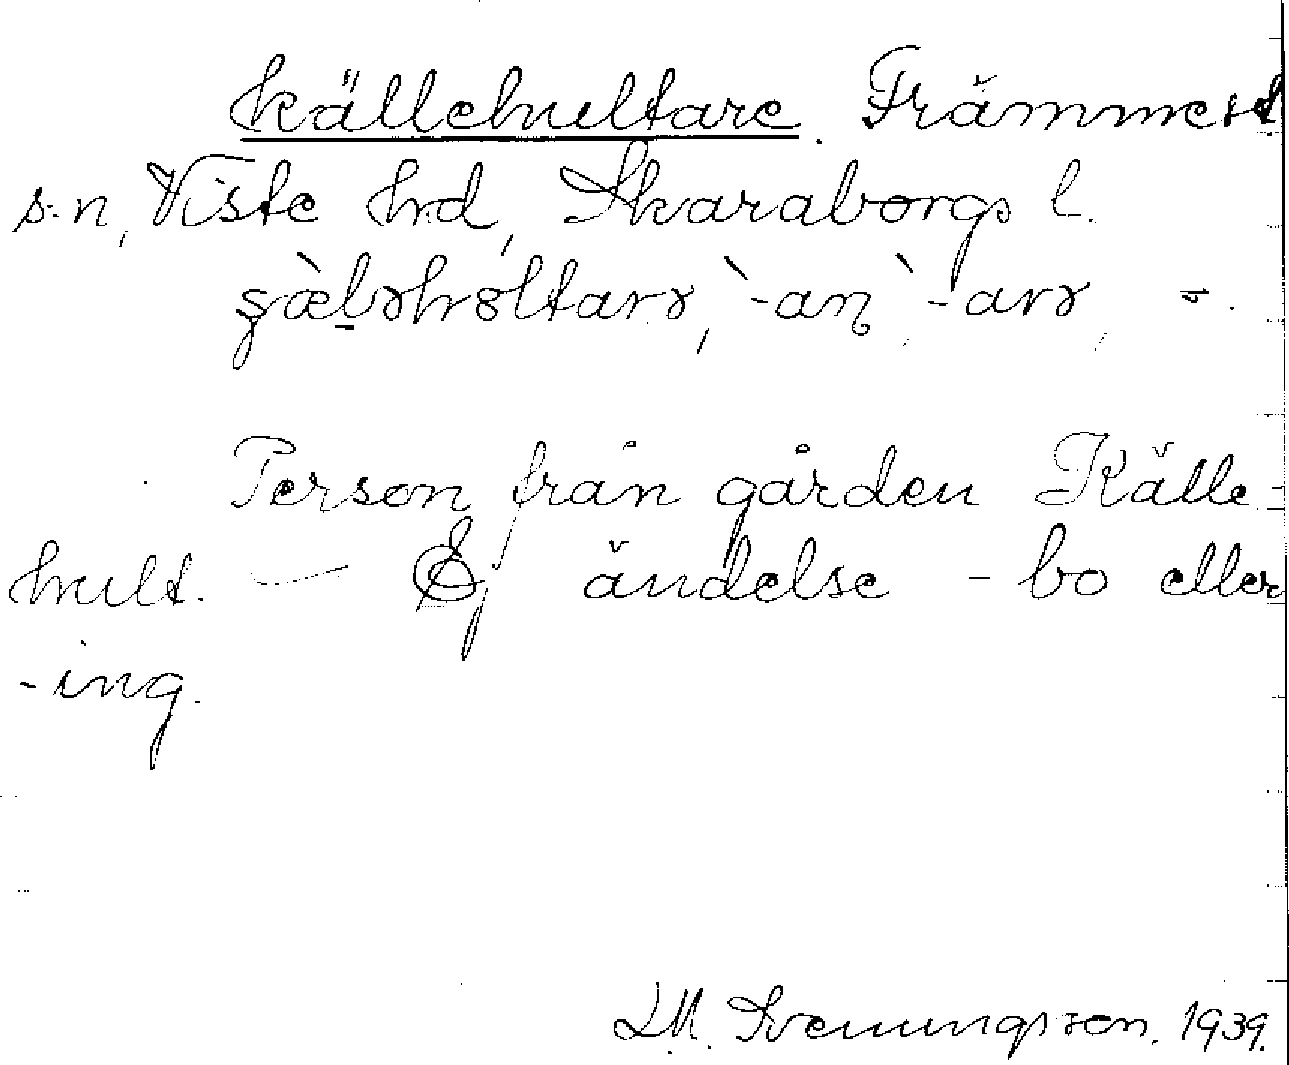 källehultare. Främmest
s.n, Viste hrd, Skaraborgs l.
Person från gården Källe-
hult. — Ej ändelse -bo eller
-ing.
L.M. Svenungsson. 1939.